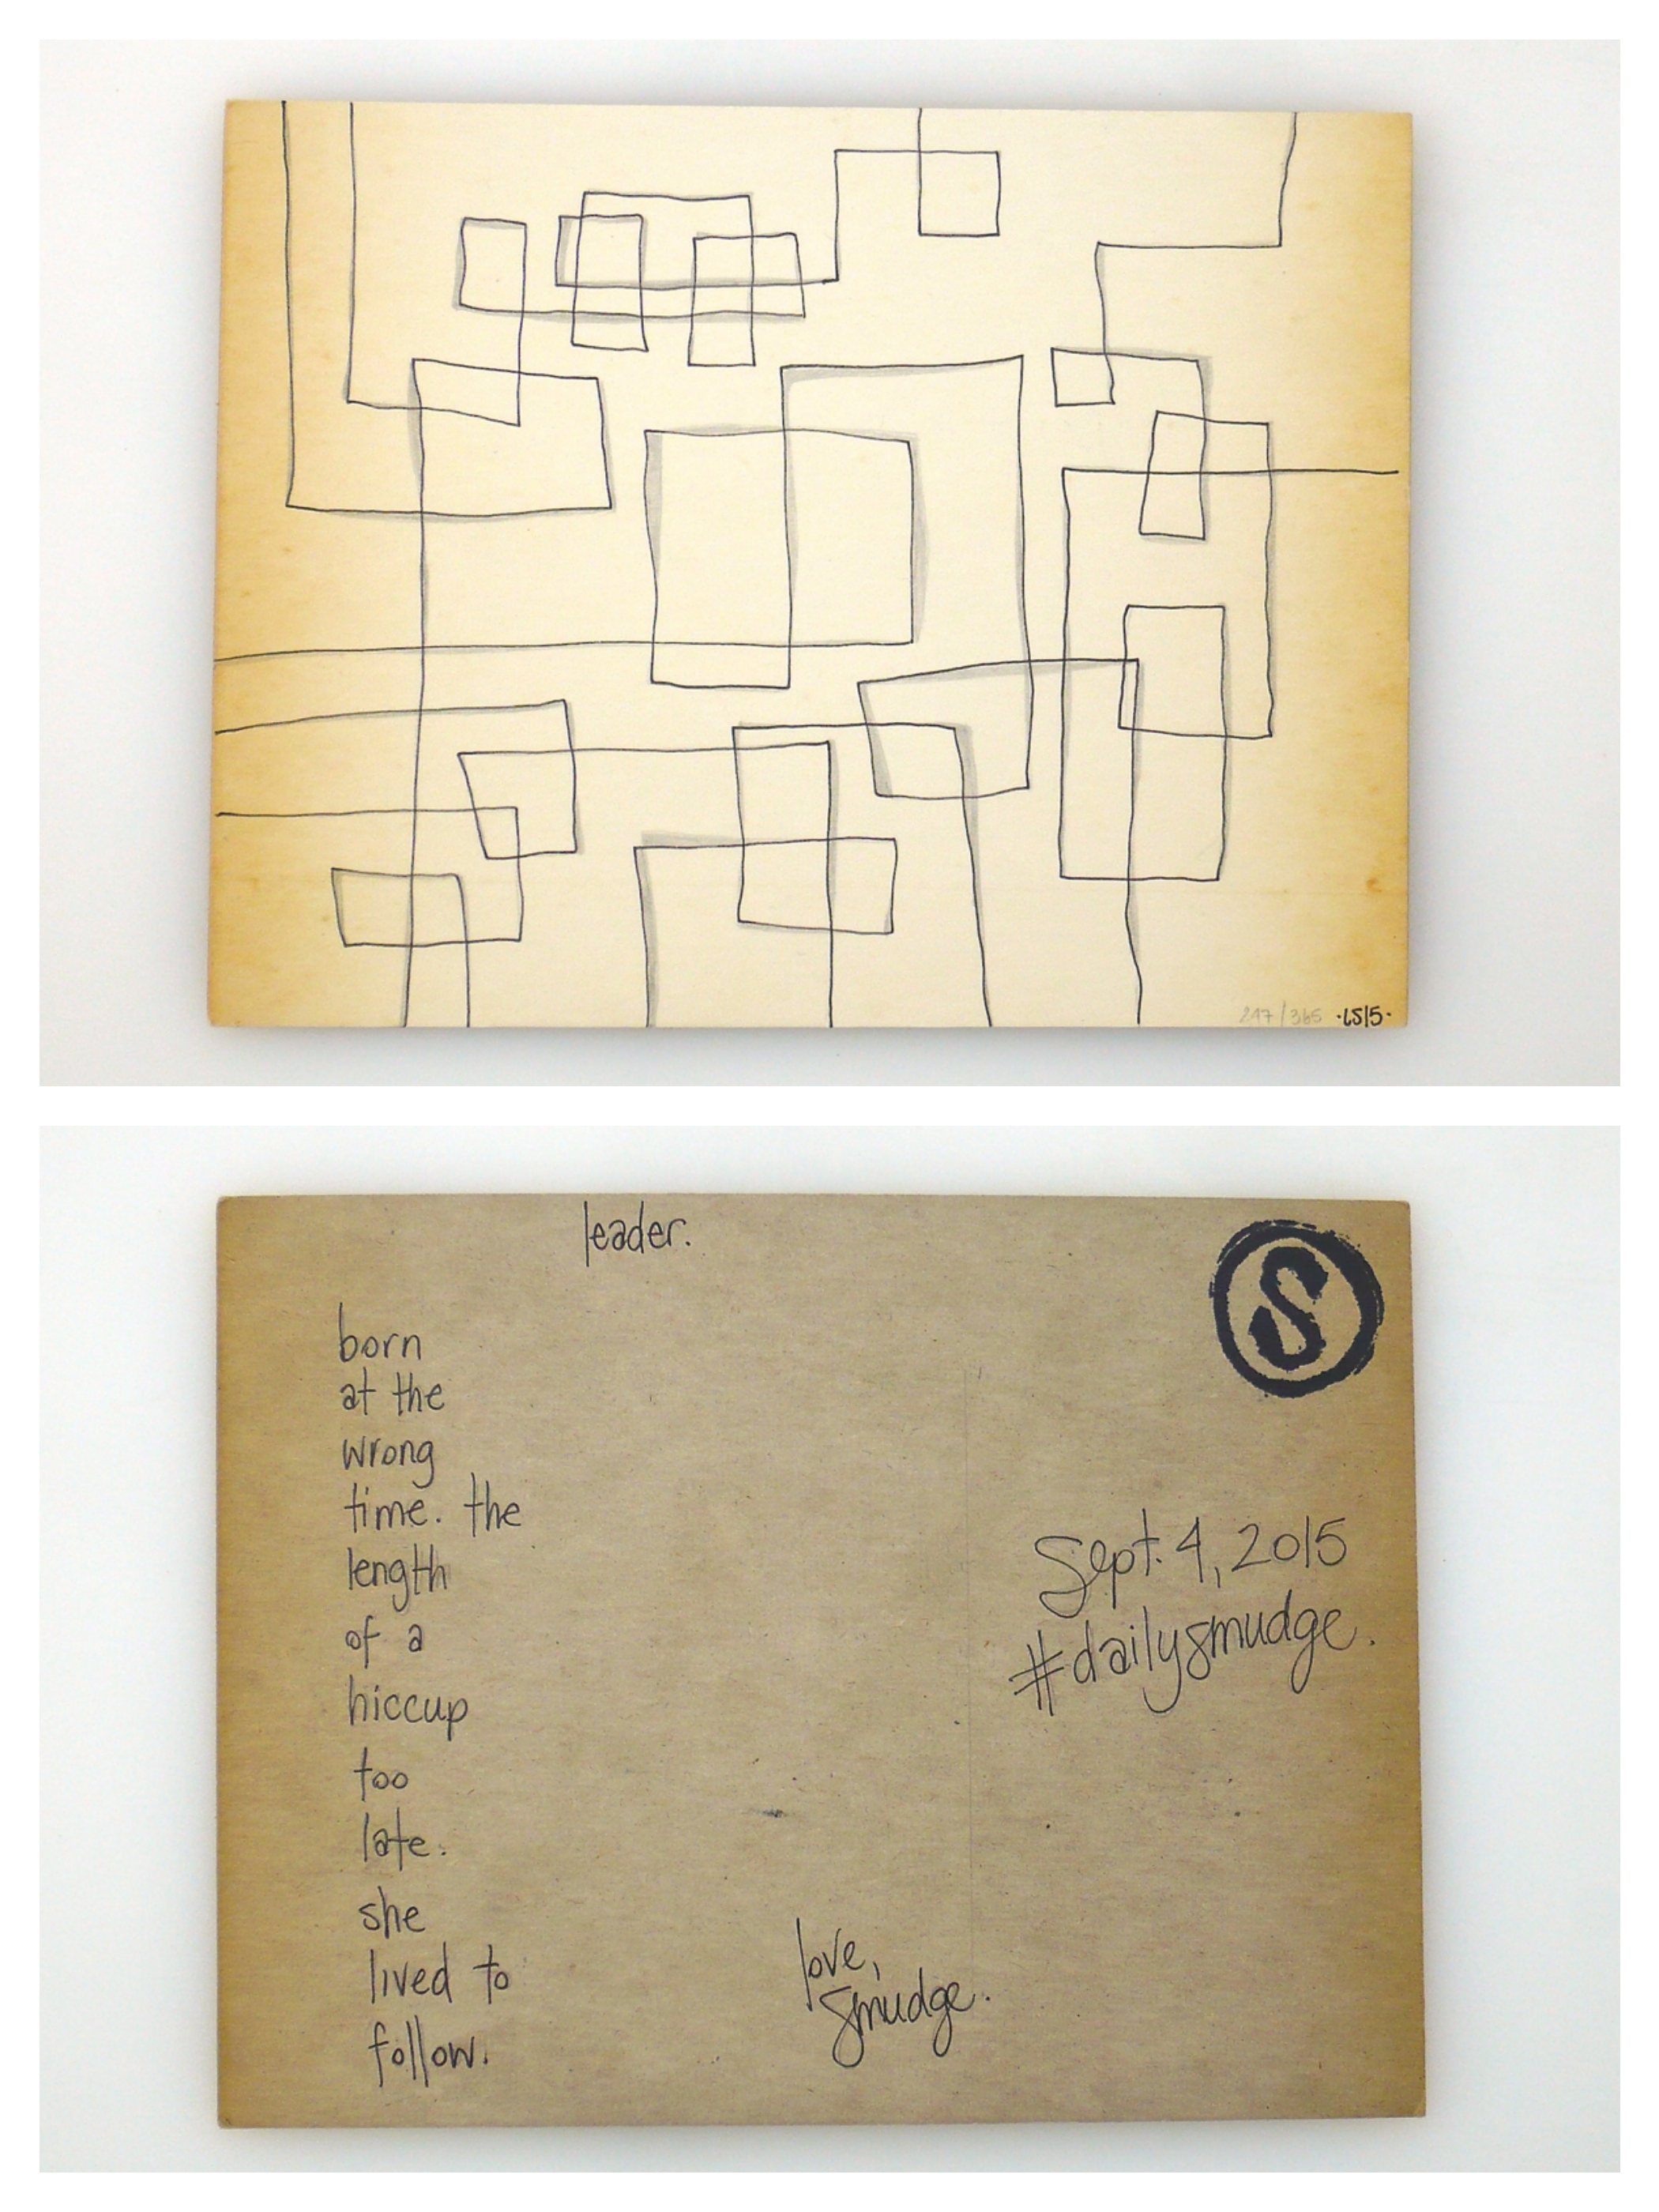 247/365 ·LS15·
leader.
S
born
at the
wrong
time. the
length
of a
hiccup
too
late.
she
lived to
follow.
Sept. 4, 2015
#dailysmudge.
love,
smudge.